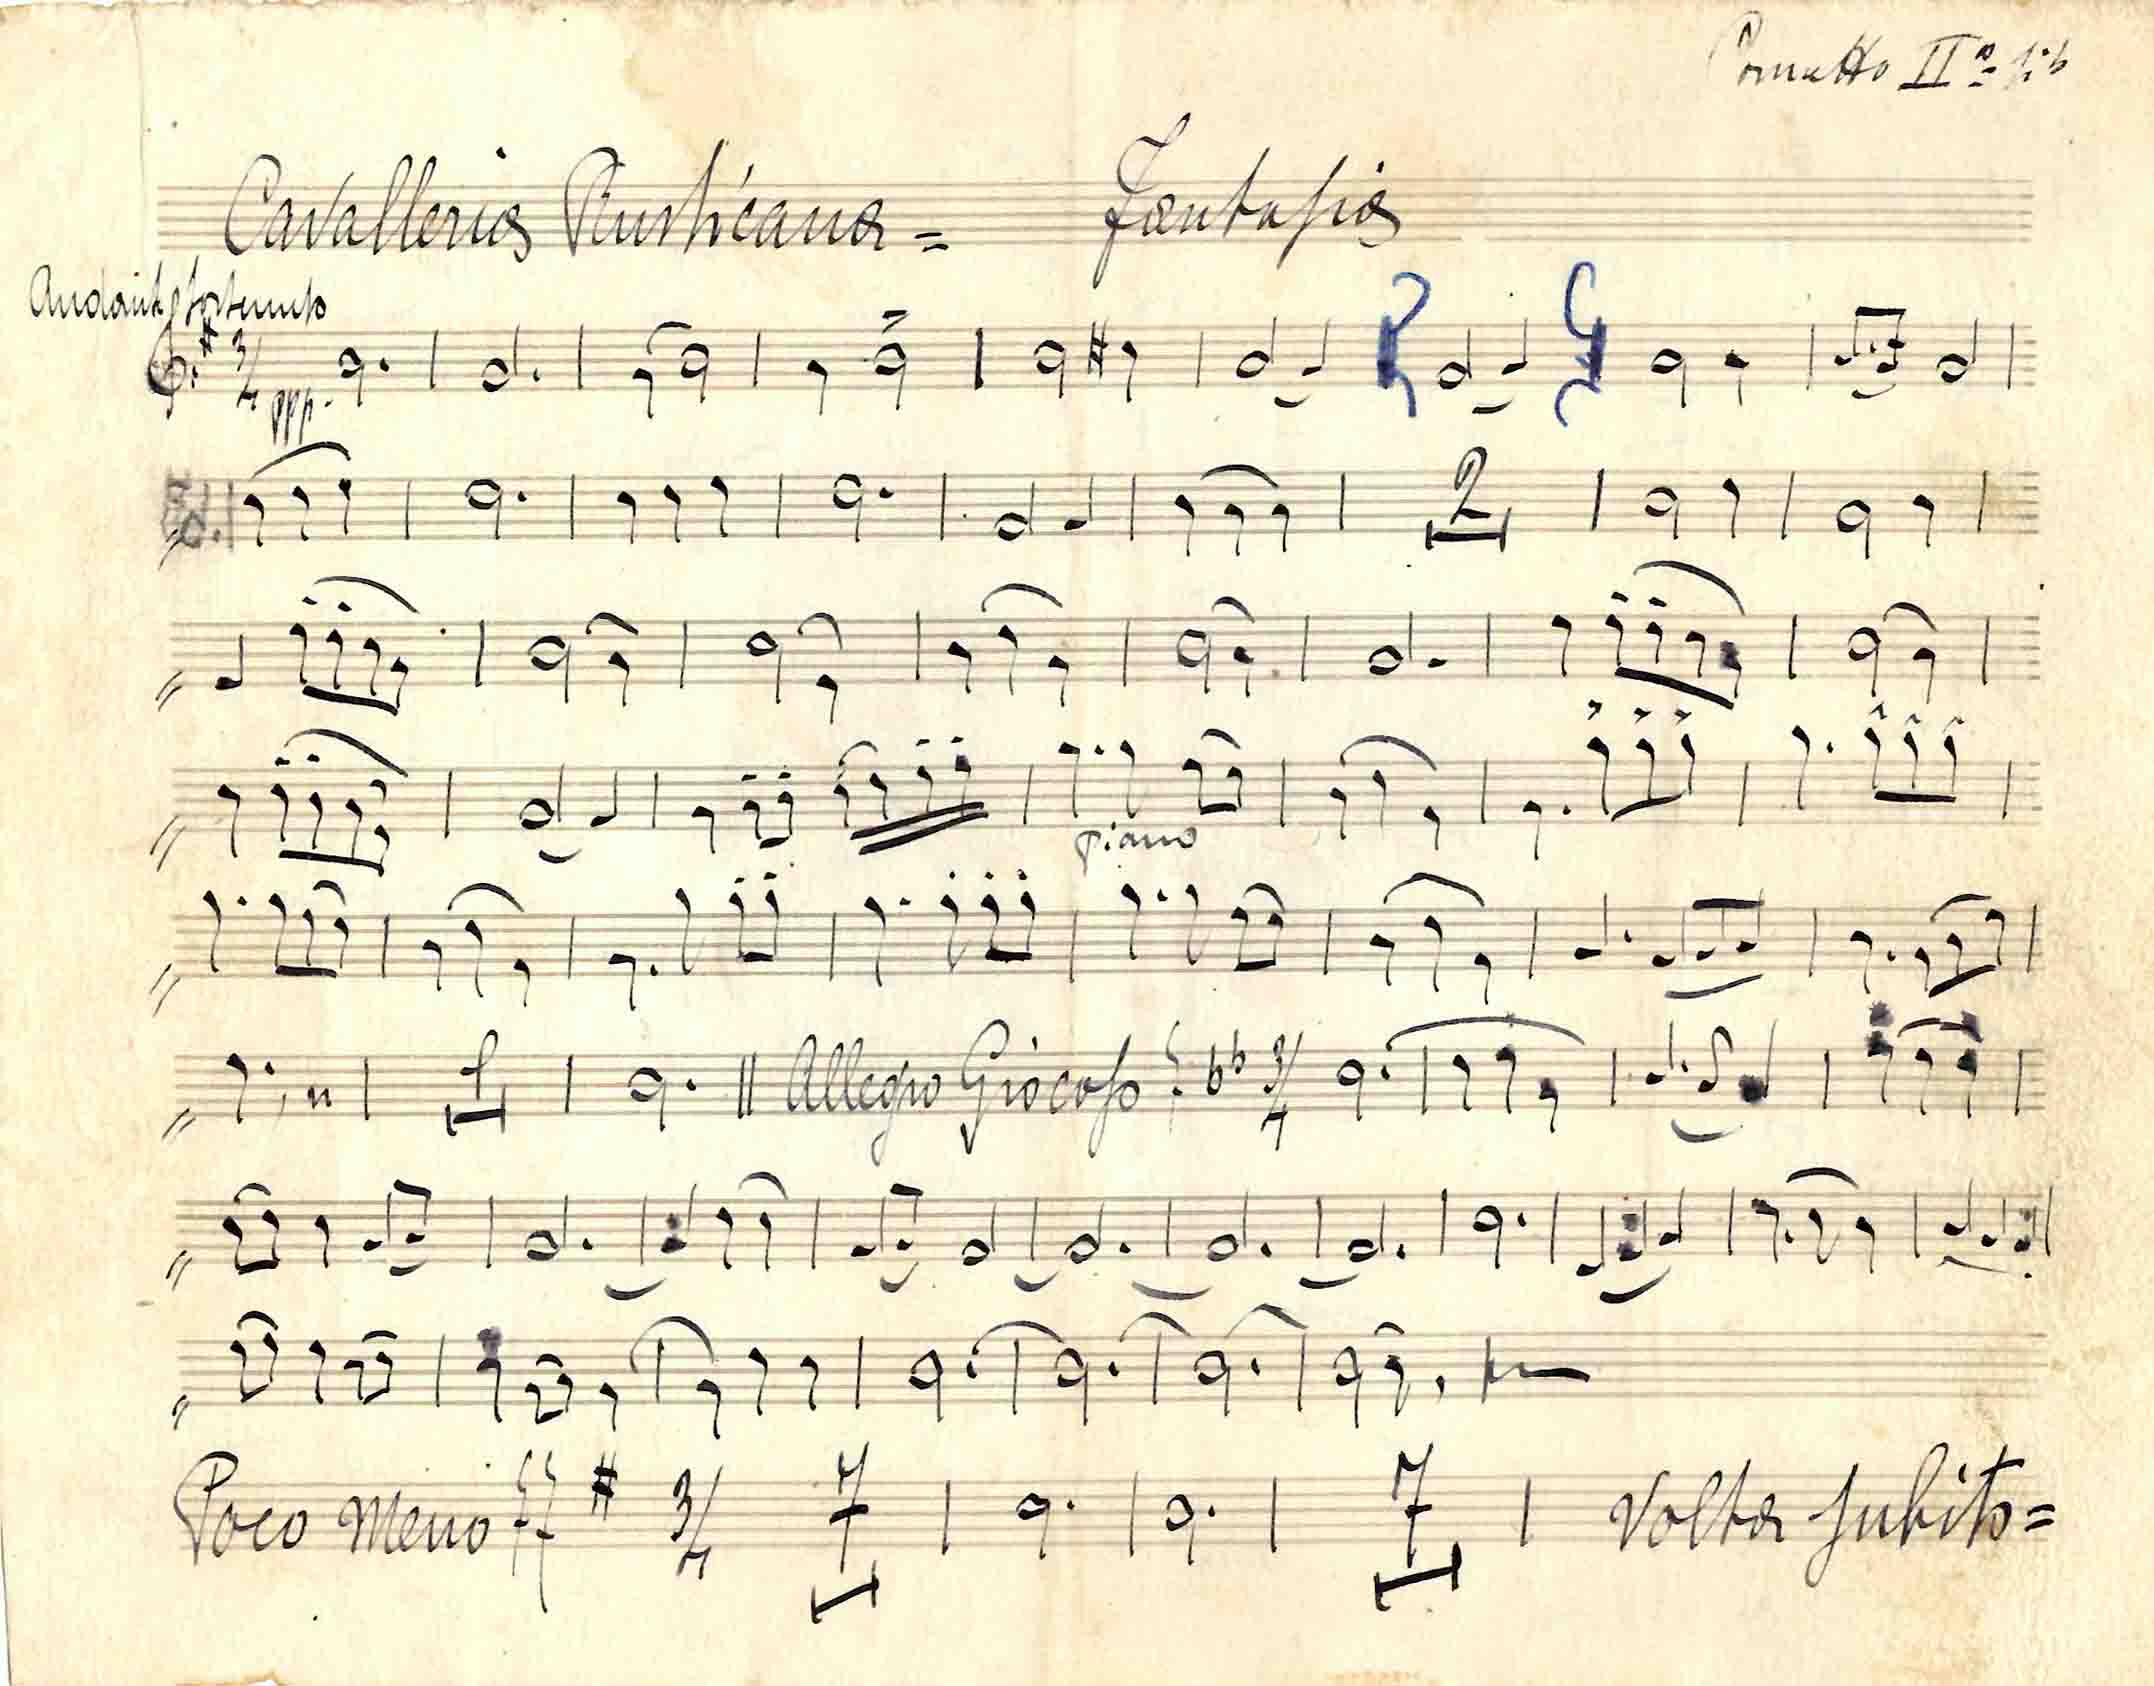 Cornetto IIº si b
Cavalleria Rusticana = Fantasia
Andante sostenuto
3/4
ppp.
2
piano
1
Allegro Giocoso 3/4
Poco Meno 3/4 7 7 Volta subito =